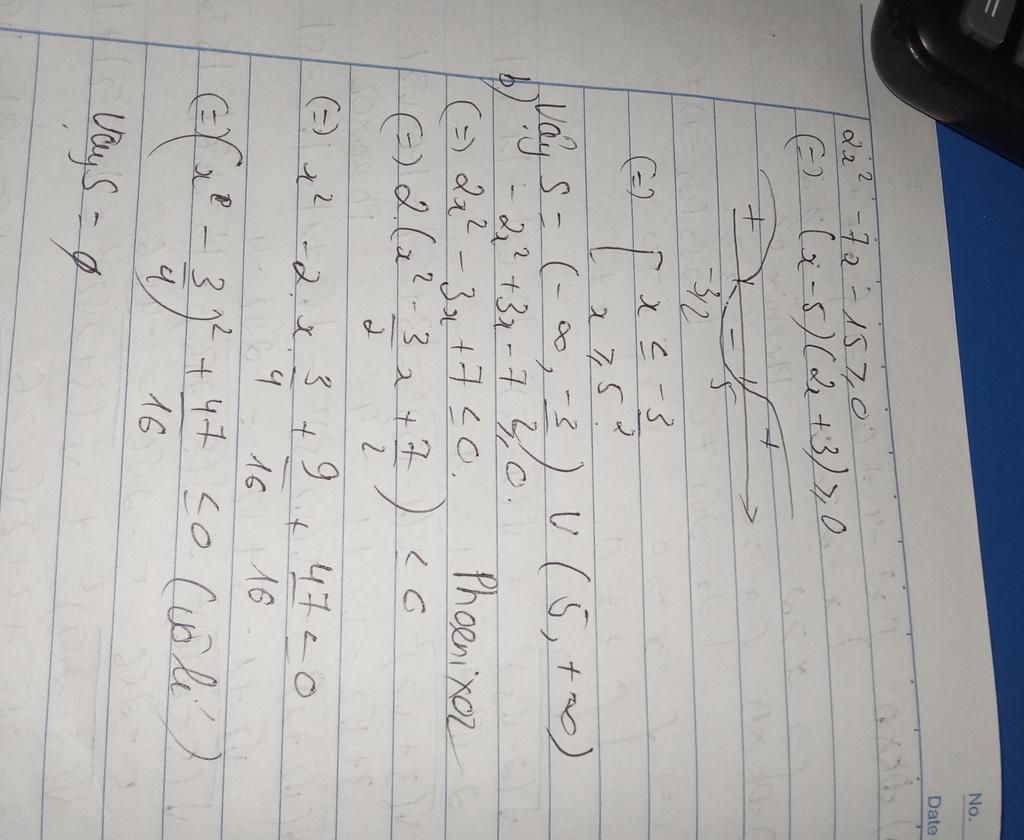 No.
Date
2x² - 7x - 15 ≥ 0
(=) (x - 5)(2x + 3) ≥ 0
+ - +
-3/2 5
(=) [ x ≤ -3/2
x ≥ 5
Vậy S = (-∞, -3/2) U (5, +∞)
b) - 2x² + 3x - 7 ≥ 0.
(=) 2x² - 3x + 7 ≤ 0. Phoenixoz
(=) 2(x² - 3/2 x + 7/2) ≤ 0
(=) x² - 2.x.3/4 + 9/16 + 47/16 ≤ 0
(=) (x - 3/4)² + 47/16 ≤ 0 (vô lí)
Vậy S = ∅